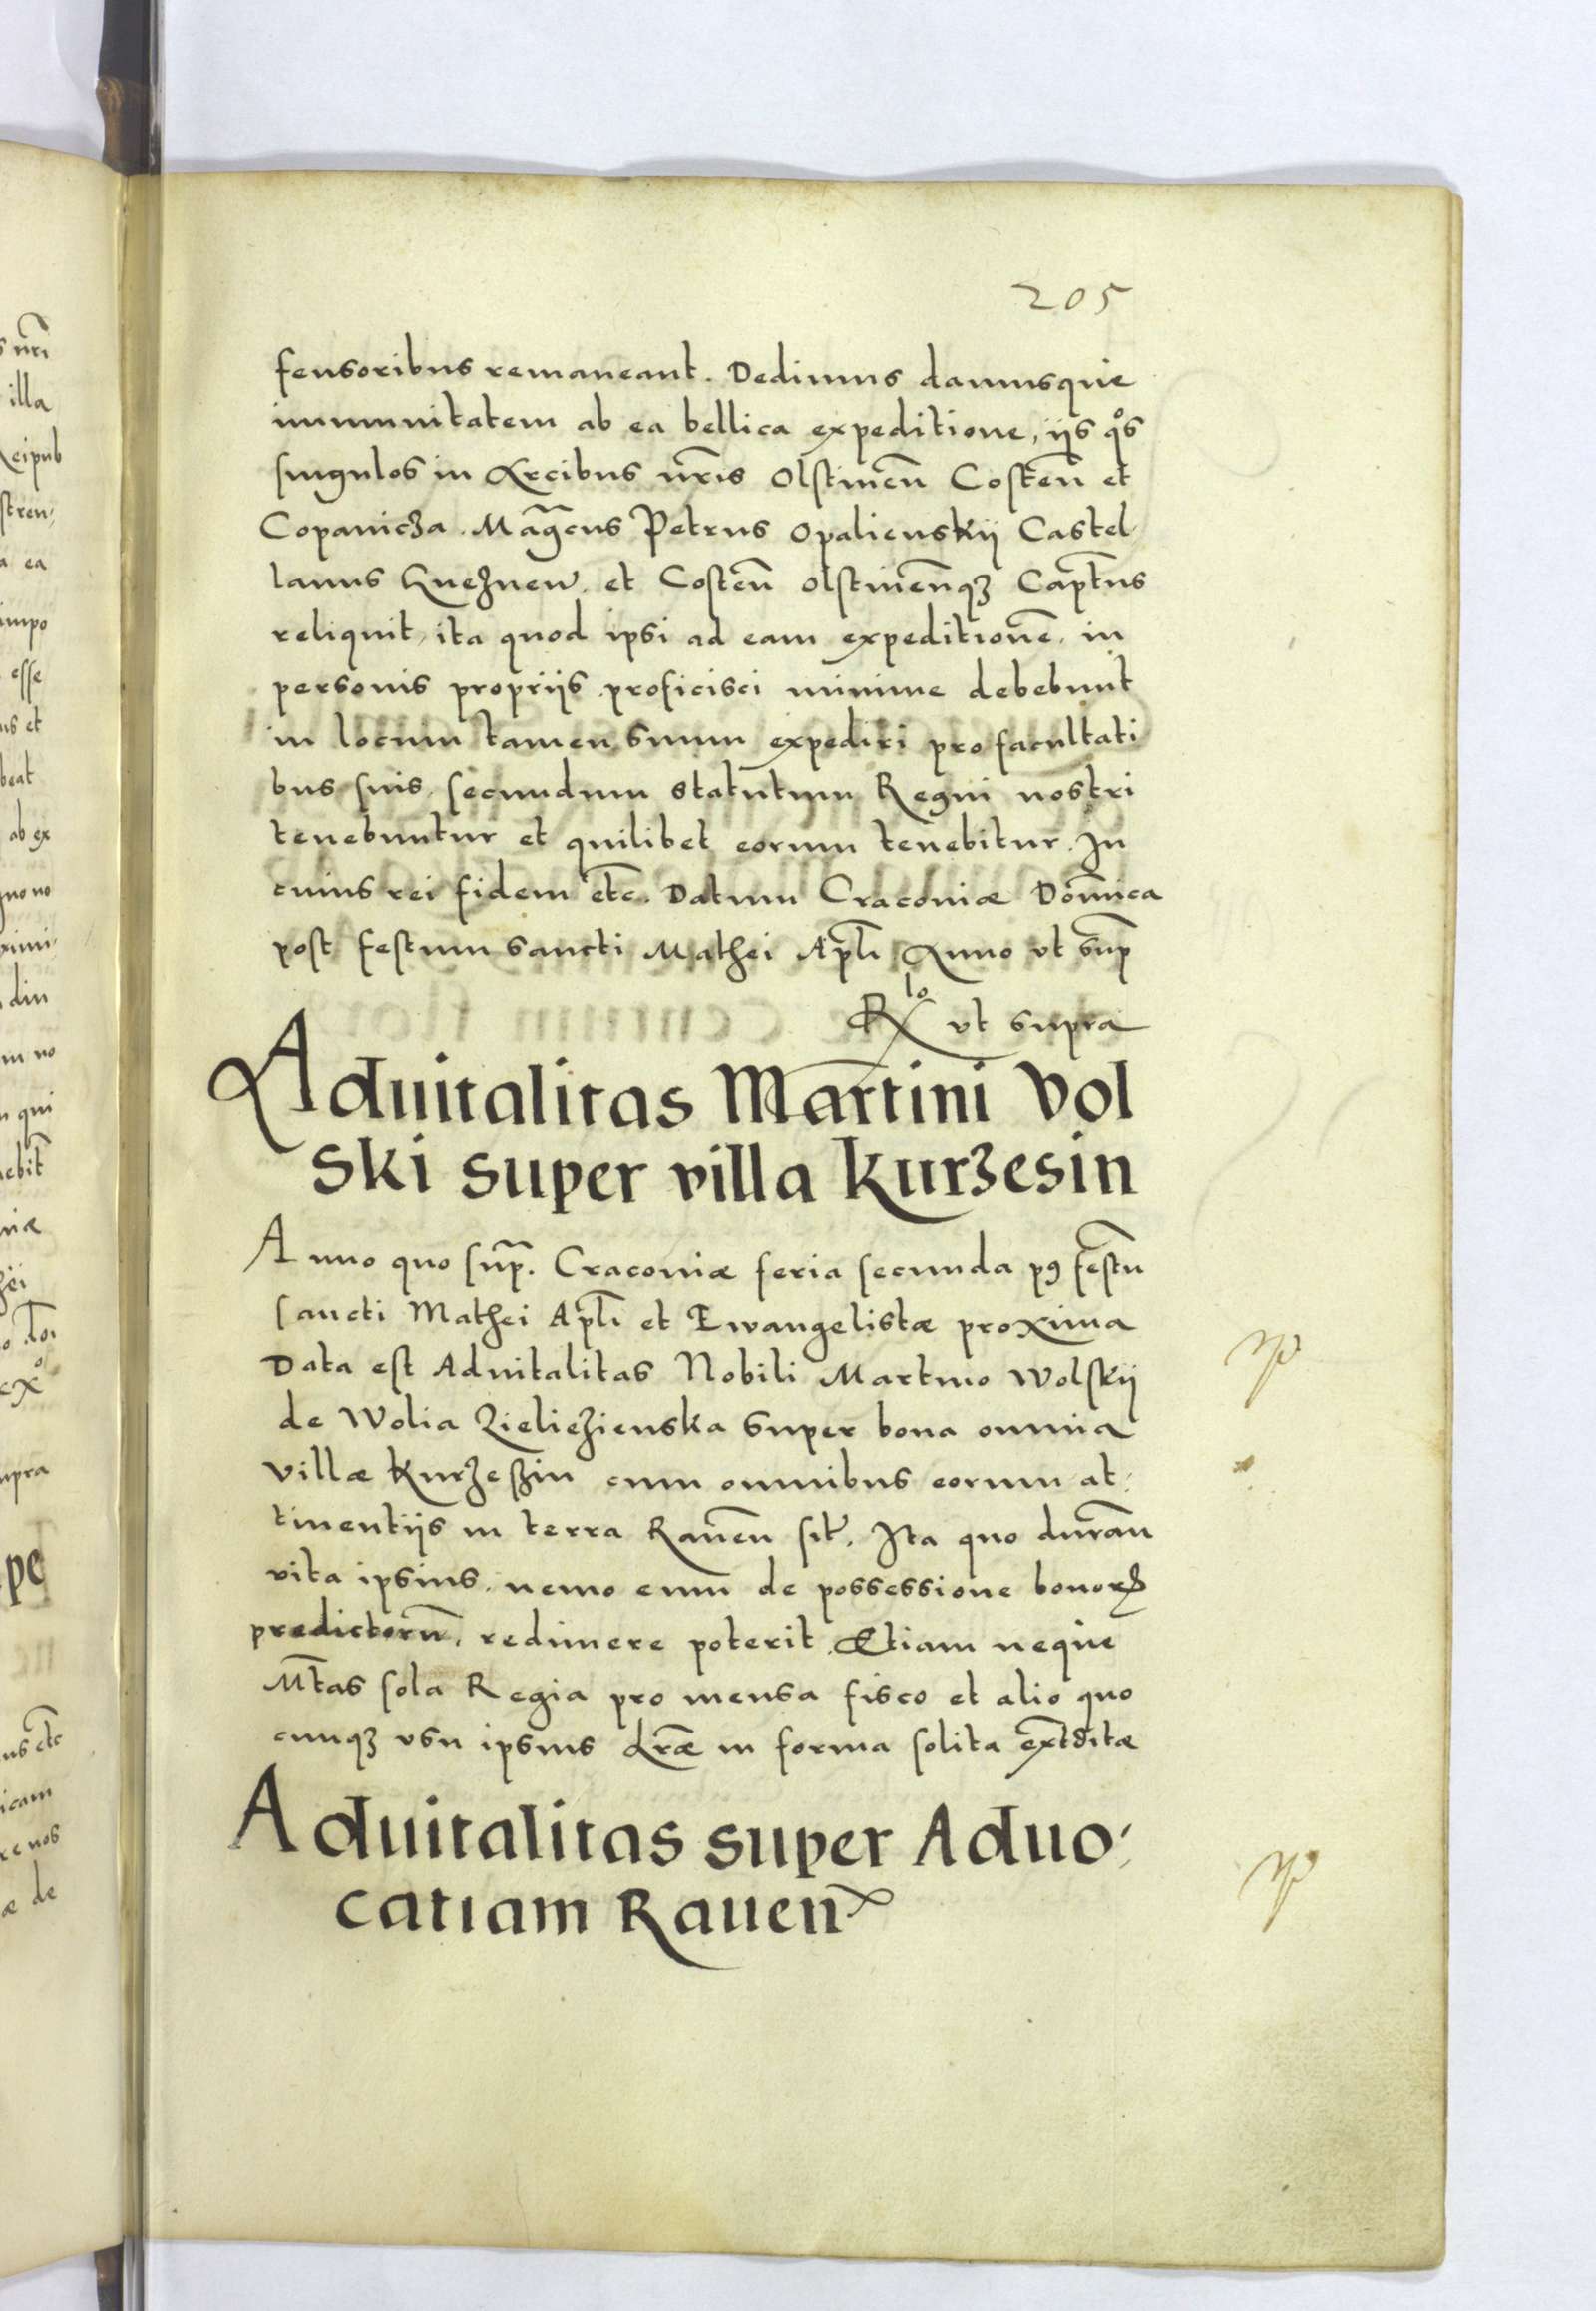 205
fensoribus remaneant. Dedimus damusque
immunitatem ab ea bellica expeditione, ijs qͦs
singulos in Arcibus nr̃is Olstinen̄ Costen̄ et
Copanicza. Mag̃cus Petrus Opalienskij Castel
lanus Gneznen̄. et Costen̄ Olstinen̄qꝫ Capt̃us
reliquit, ita quod ipsi ad eam expeditionē. in
personis proprijs proficisci minime debebunt
in locum tamen suum expediri pro facultati
bus suis, secundum statutum Regni nostri
tenebuntur et quilibet eorum tenebitur. In
cuius rei fidem etc̃. Datum Cracoviæ Dom̄nica
post festum sancti Mathei Apl̃i Anno ut sup̃
Rͣˡᵒ ut supra
Aduitalitas Martini Vol
ski super villa Kurzesin
Anno quo sup̃. Cracoviæ feria secunda pꝰ festũ
sancti Mathei Apl̃i et Ewangelistæ proxima
Data est Aduitalitas Nobili Martino Wolskij
de Wolia Zielieʒienska super bona omnia
villæ Kurzeszin cum omnibus eorum at:
tinentijs in terra Rauen̄ sit̃. Ita quo duran̄
vita ipsius, nemo eum de possessione bonorꝫ
predictorũ, redimere poterit. Etiam neque
Mt̃as sola Regia pro mensa fisco et alio quo
cunqꝫ usu ipsius Lr̃æ in forma solita ext̃ditæ
Aduitalitas super Aduo:
catiam Rauen̄